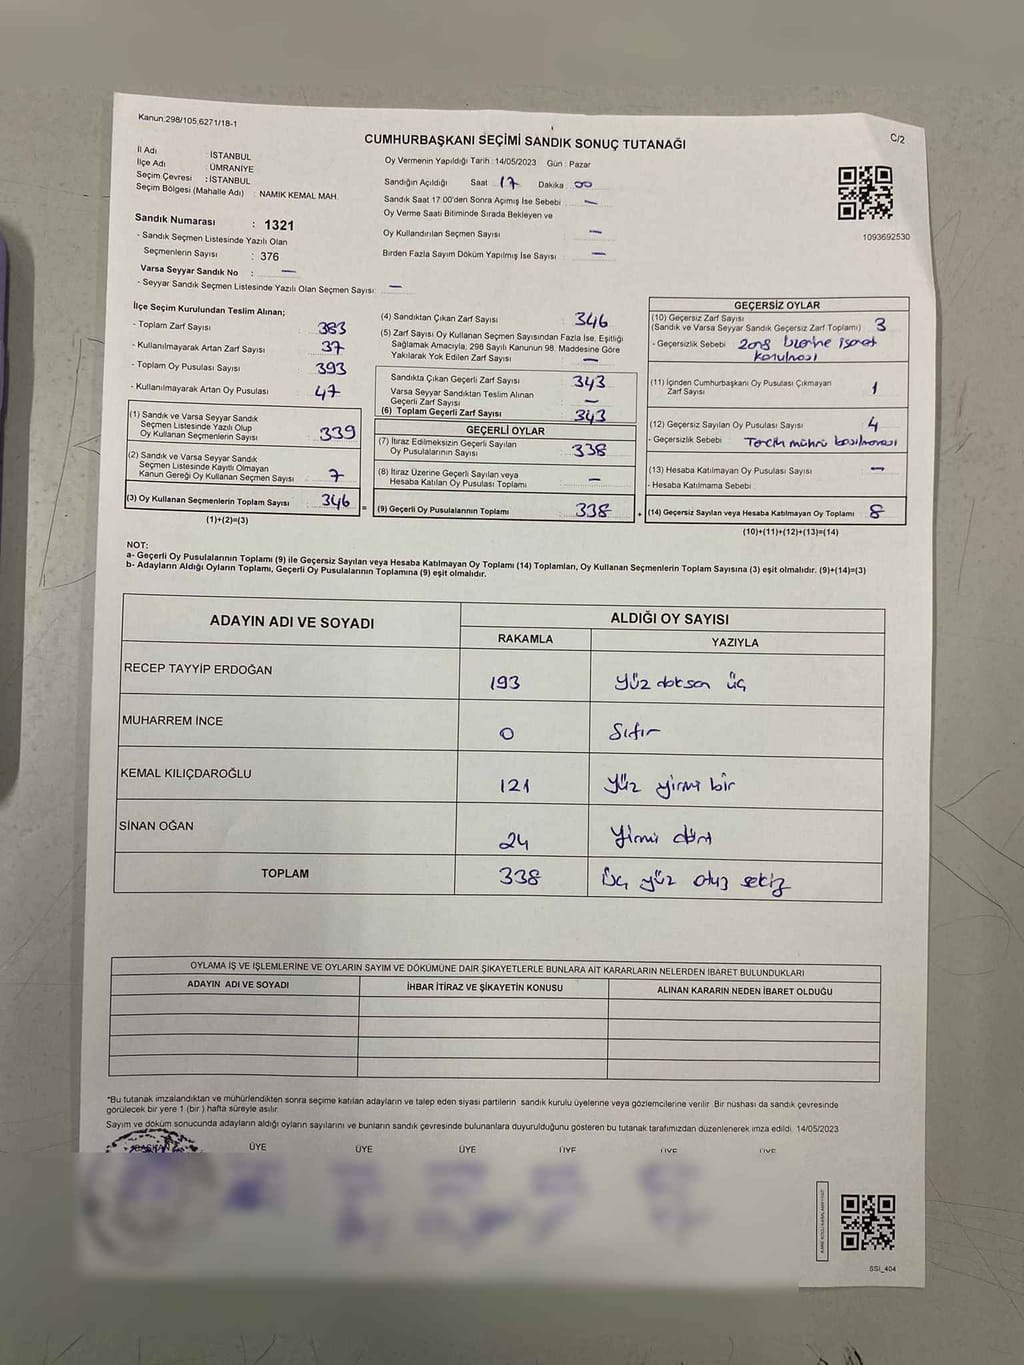 Kanun:298/105,6271/18-1
CUMHURBAŞKANI SEÇİMİ SANDIK SONUÇ TUTANAĞI
C/2
İl Adı : İSTANBUL
İlçe Adı : ÜMRANİYE
Seçim Çevresi : İSTANBUL
Seçim Bölgesi (Mahalle Adı) : NAMIK KEMAL MAH.
Sandık Numarası : 1321
- Sandık Seçmen Listesinde Yazılı Olan
Seçmenlerin Sayısı : 376
Varsa Seyyar Sandık No : —
- Seyyar Sandık Seçmen Listesinde Yazılı Olan Seçmen Sayısı: —
Oy Vermenin Yapıldığı Tarih : 14/05/2023 Gün : Pazar
Sandığın Açıldığı Saat 17 Dakika 00
Sandık Saat 17:00'den Sonra Açımış İse Sebebi —
Oy Verme Saati Bitiminde Sırada Bekleyen ve
Oy Kullandırılan Seçmen Sayısı —
Birden Fazla Sayım Döküm Yapılmış İse Sayısı —
1093692530
İlçe Seçim Kurulundan Teslim Alınan;
- Toplam Zarf Sayısı 383
- Kullanılmayarak Artan Zarf Sayısı 37
- Toplam Oy Pusulası Sayısı 393
- Kullanılmayarak Artan Oy Pusulası 47
(1) Sandık ve Varsa Seyyar Sandık
Seçmen Listesinde Yazılı Olup
Oy Kullanan Seçmenlerin Sayısı 339
(2) Sandık ve Varsa Seyyar Sandık
Seçmen Listesinde Kayıtlı Olmayan
Kanun Gereği Oy Kullanan Seçmen Sayısı 7
(3) Oy Kullanan Seçmenlerin Toplam Sayısı 346
(1)+(2)=(3)
(4) Sandıktan Çıkan Zarf Sayısı 346
(5) Zarf Sayısı Oy Kullanan Seçmen Sayısından Fazla İse, Eşitliği
Sağlamak Amacıyla, 298 Sayılı Kanunun 98. Maddesine Göre
Yakılarak Yok Edilen Zarf Sayısı —
Sandıkta Çıkan Geçerli Zarf Sayısı 343
Varsa Seyyar Sandıktan Teslim Alınan
Geçerli Zarf Sayısı —
(6) Toplam Geçerli Zarf Sayısı 343
GEÇERLİ OYLAR
(7) İtiraz Edilmeksizin Geçerli Sayılan
Oy Pusulalarının Sayısı 338
(8) İtiraz Üzerine Geçerli Sayılan veya
Hesaba Katılan Oy Pusulası Toplamı —
= (9) Geçerli Oy Pusulalarının Toplamı 338 +
GEÇERSİZ OYLAR
(10) Geçersiz Zarf Sayısı
(Sandık ve Varsa Seyyar Sandık Geçersiz Zarf Toplamı) 3
- Geçersizlik Sebebi Zarf üzerine işaret
konulması
(11) İçinden Cumhurbaşkanı Oy Pusulası Çıkmayan
Zarf Sayısı 1
(12) Geçersiz Sayılan Oy Pusulası Sayısı 4
- Geçersizlik Sebebi Tercih mührü basılmaması
(13) Hesaba Katılmayan Oy Pusulası Sayısı —
- Hesaba Katılmama Sebebi
(14) Geçersiz Sayılan veya Hesaba Katılmayan Oy Toplamı 8
(10)+(11)+(12)+(13)=(14)
NOT:
a- Geçerli Oy Pusulalarının Toplamı (9) ile Geçersiz Sayılan veya Hesaba Katılmayan Oy Toplamı (14) Toplamları, Oy Kullanan Seçmenlerin Toplam Sayısına (3) eşit olmalıdır. (9)+(14)=(3)
b- Adayların Aldığı Oyların Toplamı, Geçerli Oy Pusulalarının Toplamına (9) eşit olmalıdır.
ADAYIN ADI VE SOYADI ALDIĞI OY SAYISI
RAKAMLA YAZIYLA
RECEP TAYYİP ERDOĞAN 193 yüz doksan üç
MUHARREM İNCE 0 Sıfır
KEMAL KILIÇDAROĞLU 121 yüz yirmi bir
SİNAN OĞAN 24 Yirmi dört
TOPLAM 338 Üç yüz otuz sekiz
OYLAMA İŞ VE İŞLEMLERİNE VE OYLARIN SAYIM VE DÖKÜMÜNE DAİR ŞİKAYETLERLE BUNLARA AİT KARARLARIN NELERDEN İBARET BULUNDUKLARI
ADAYIN ADI VE SOYADI İHBAR İTİRAZ VE ŞİKAYETİN KONUSU ALINAN KARARIN NEDEN İBARET OLDUĞU
*Bu tutanak imzalandıktan ve mühürlendikten sonra seçime katılan adayların ve talep eden siyasi partilerin sandık kurulu üyelerine veya gözlemcilerine verilir. Bir nüshası da sandık çevresinde
görülecek bir yere 1 (bir) hafta süreyle asılır.
Sayım ve döküm sonucunda adayların aldığı oyların sayılarını ve bunların sandık çevresinde bulunanlara duyurulduğunu gösteren bu tutanak tarafımızdan düzenlenerek imza edildi. 14/05/2023
BAŞKAN ÜYE ÜYE ÜYE ÜYE ÜYE ÜYE
SSI_404